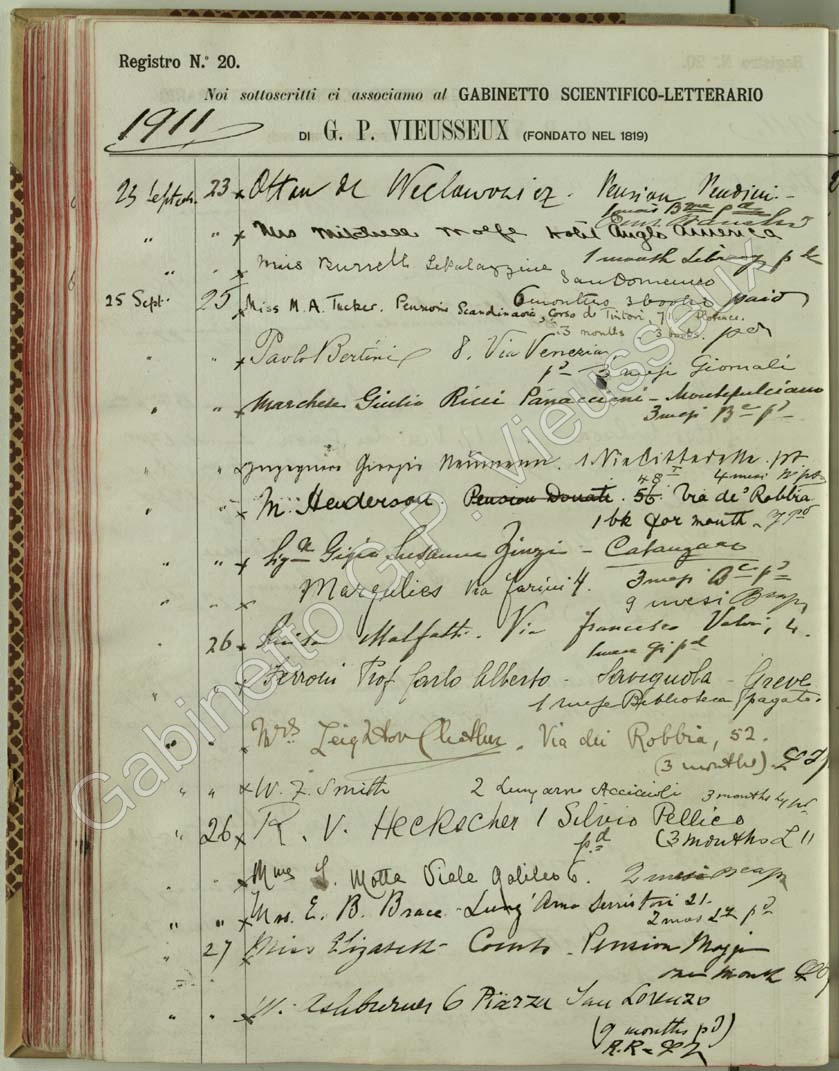 Registro N.° 20.
Noi sottoscritti ci associamo al GABINETTO SCIENTIFICO-LETTERARIO
1911
DI G. P. VIEUSSEUX (FONDATO NEL 1819)
23 Settem. 23 x Otton de Weclawowicz. Pension Pendini
1 mois
" " x Mrs Mitchell Wolfe Hotel Anglo America
" " x Miss Burrell 1 month Library pd
San Domenico
6 months 3 books paid
25 Sept. 25 x Miss M. A. Tucker. Pensione Scandinavia, Corso de Tintori, 71 Florence.
3 months 3 books. pd
" " x Paolo Bertini 8. Via Venezia
pd 3 mesi Giornali
" " x Marchese Giulio Ricci Panaccioni - Montepulciano
3 mesi Be pd
" " x Ingegnere Giorgio Neumann. 1 Via Cittadella. pt
4 mesi
" " x M. Henderson Pension Donati. 56. 48 Via de' Robbia
1 bk for month
" " x Gigia Susanna - Catanzaro
3 mesi Be pd
" " x Margulies Via Farini 4.
9 mesi
26 x Guido Malfatti. Via Francesco Valori, 4.
1 mese gi pd
" " x Ferroni Prof Carlo Alberto - Savignola - Greve
1 mese Biblioteca (pagato.
" " x Mrs. Leighton Cleather. Via dei Robbia, 52.
(3 months).
" " x W. F. Smith 2 Lungarno Acciaioli 3 months
" 26 x R. V. Heckscher 1 Silvio Pellico
pd (3 months L 11
" " x Mme S. Motta Viale Galileo 6. 2 mesi
" " x Mrs. E. B. Brace - Lung' Arno Serristori 21.
2 mos L7 pd
" 27 x Miss Elizabeth Coombs - Pension Mozzi
one month
" " x W. Ashburner 6 Piazza San Lorenzo
(9 months pd)
Gabinetto G.P. Vieusseux